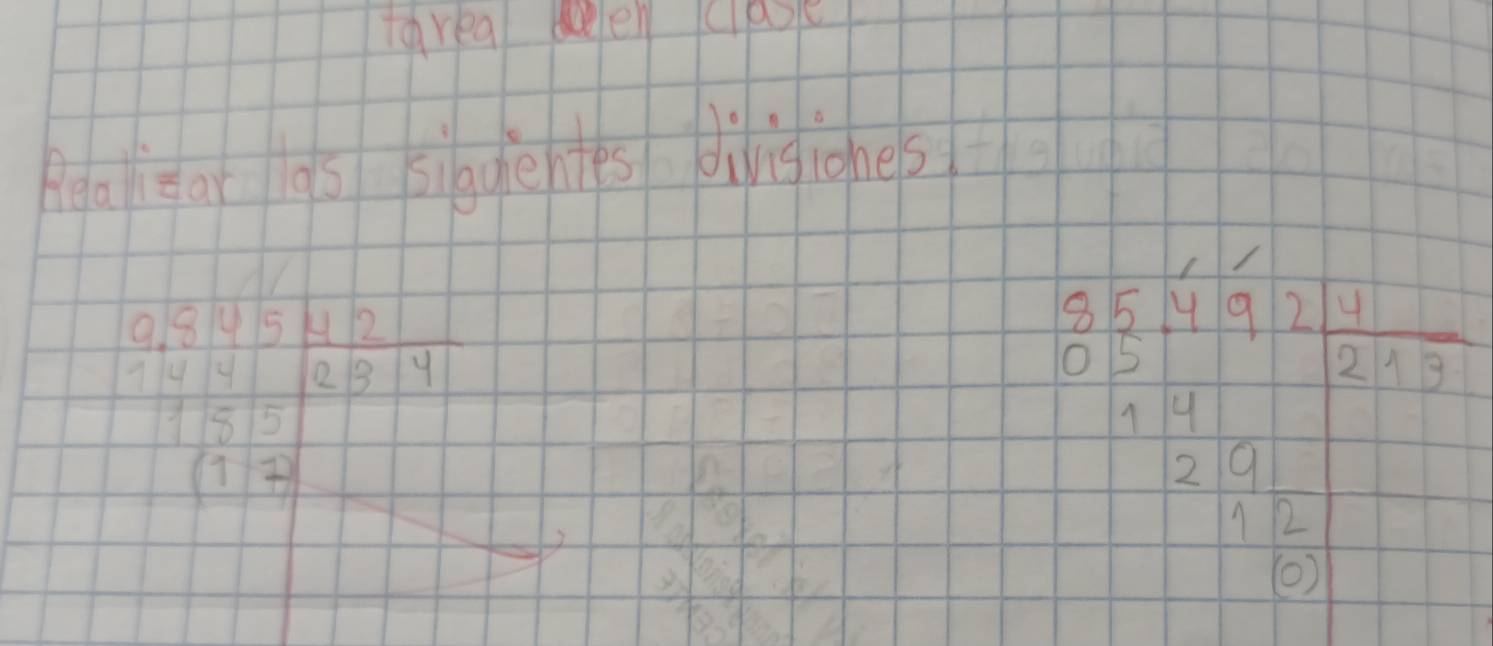 tarea en clase
Realizar las siguientes divisiones.
9.845 42
144 234
185
(17)
85.492 4
05 213
14
29
12
(0)